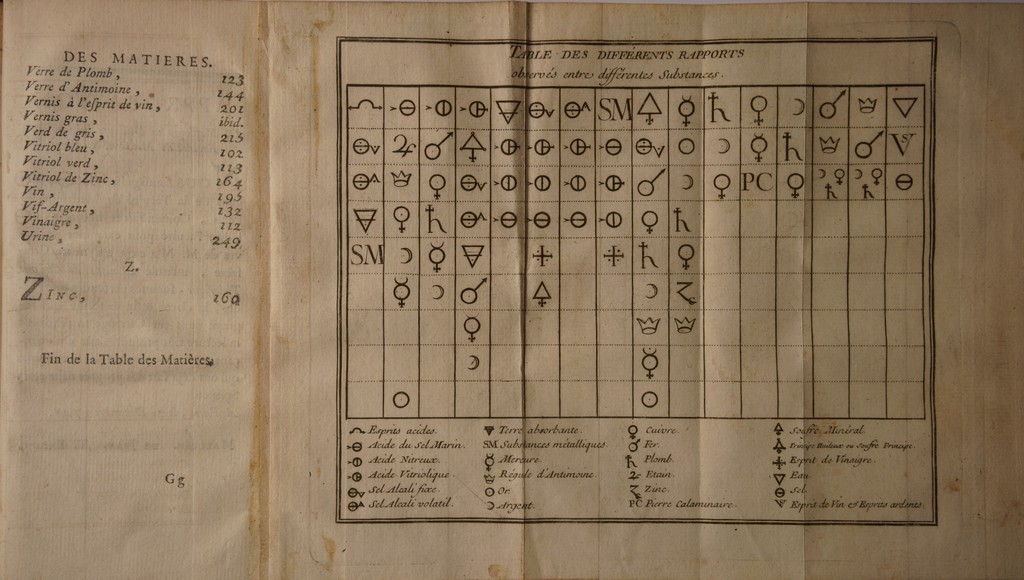 DES MATIERES.
Verre de Plomb, 123
Verre d'Antimoine, 144
Vernis à l'esprit de vin, 201
Vernis gras, ibid.
Verd de gris, 215
Vitriol bleu, 102
Vitriol verd, 113
Vitriol de Zinc, 164
Vin, 195
Vif-Argent, 132
Vinaigre, 112
Urine, 249
Z.
ZINC, 160
Fin de la Table des Matières.
Gg
TABLE DES DIFFÉRENTS RAPPORTS
observés entre différentes Substances.
SM
V
PC
SM
Esprits acides.
Acide du Sel Marin.
Acide Nitreux.
Acide Vitriolique.
Sel Alcali fixe.
Sel Alcali volatil.
Terre absorbante.
SM Substances métalliques.
Mercure.
Régule d'Antimoine.
Or.
Argent.
Cuivre.
Fer.
Plomb.
Etain.
Zinc.
PC Pierre Calaminaire.
Souffre Minéral.
Principe Huileux ou Souffre Principe.
Esprit de Vinaigre.
Eau.
Sel.
Esprit de Vin et Esprits ardents.